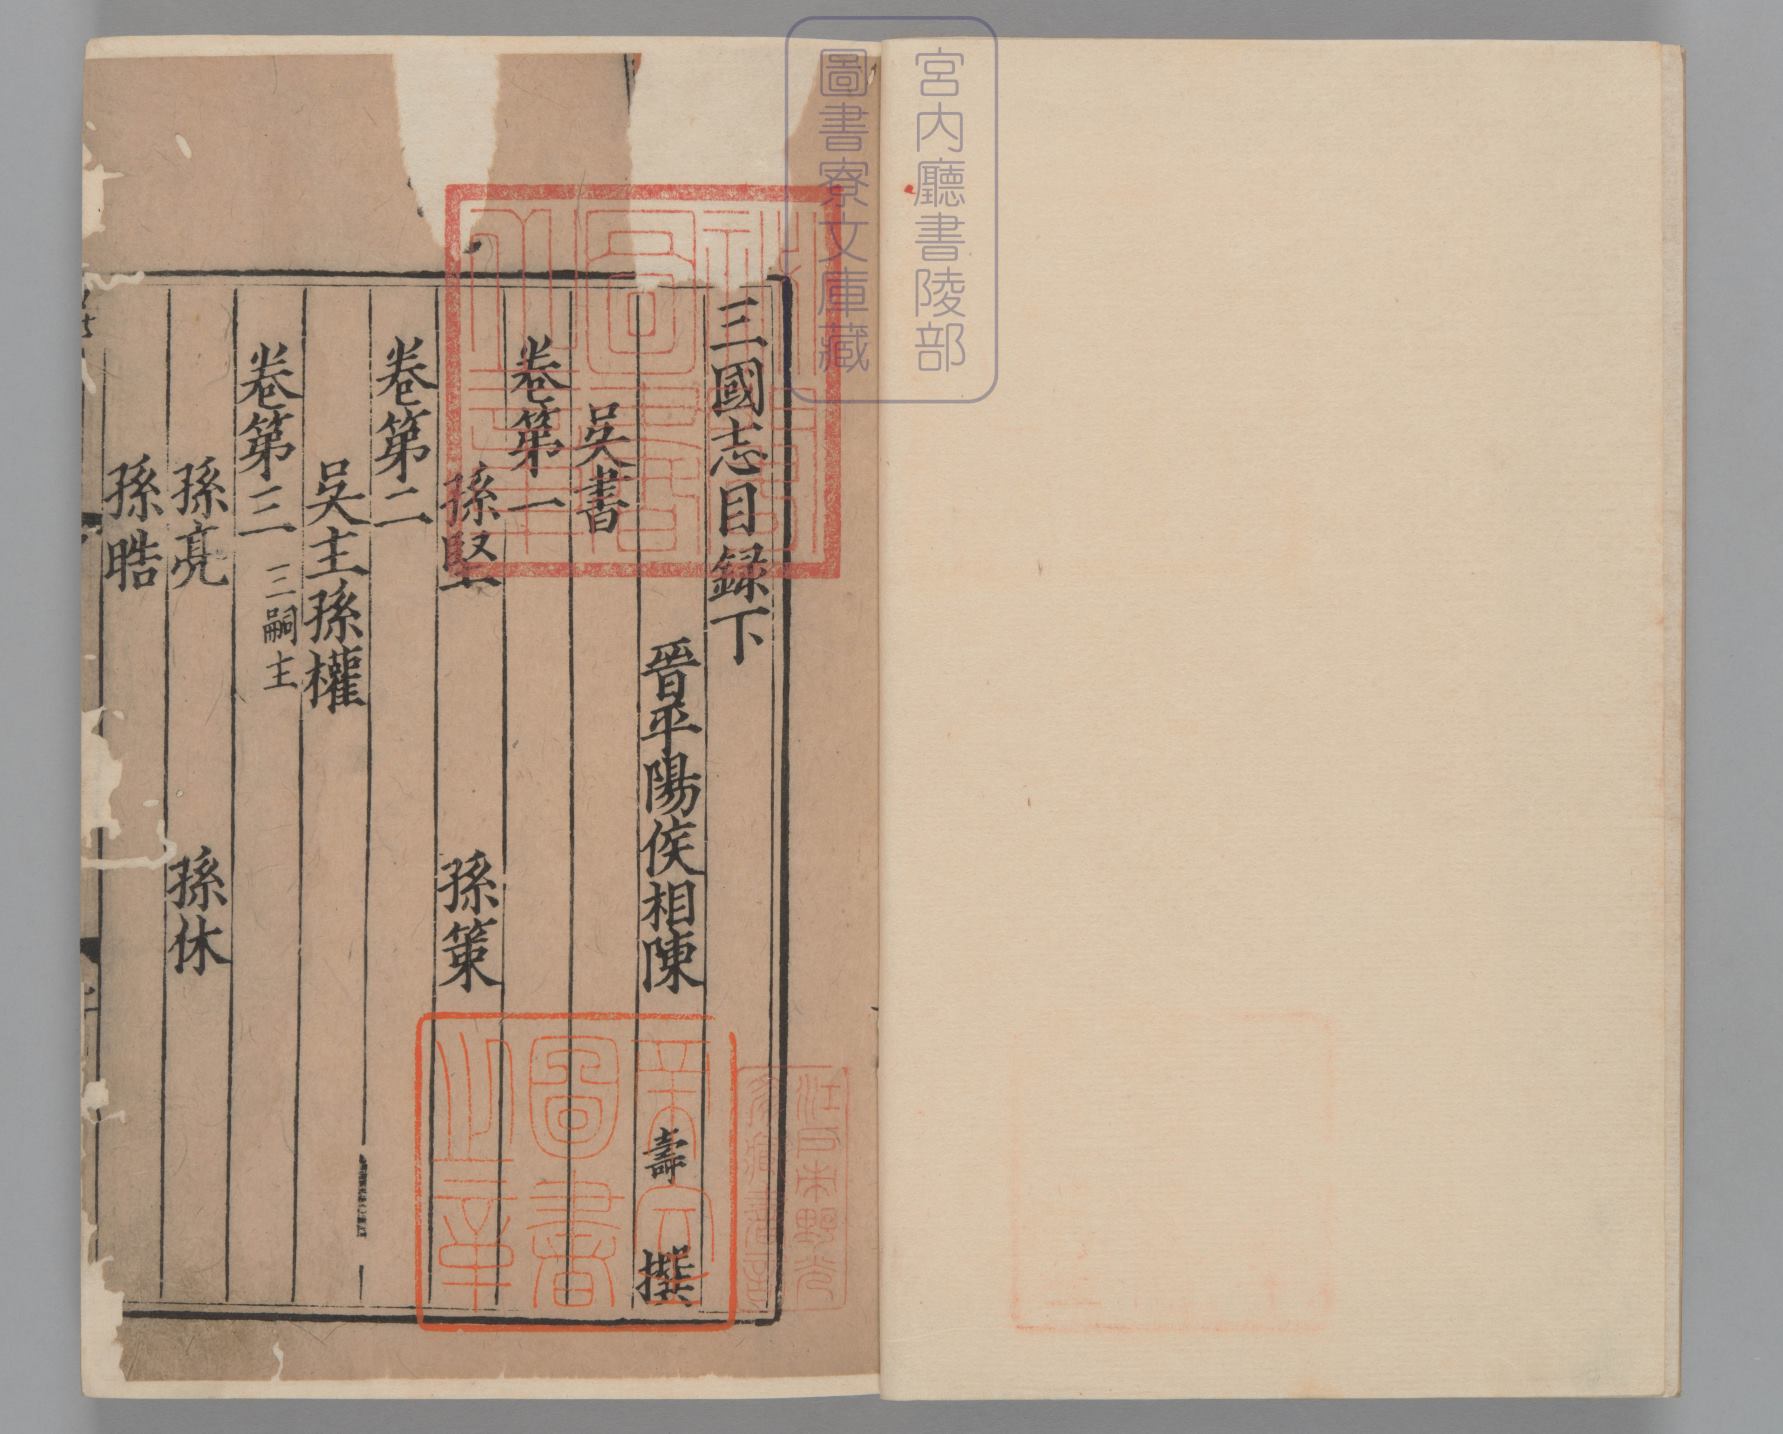 宮内廳書陵部
圖書寮文庫藏
三國志目録下
晉平陽侯相陳壽撰
吳書
卷第一
孫堅 孫策
卷第二
吳主孫權
卷第三 三嗣主
孫亮 孫休
孫晧
圖書
之章